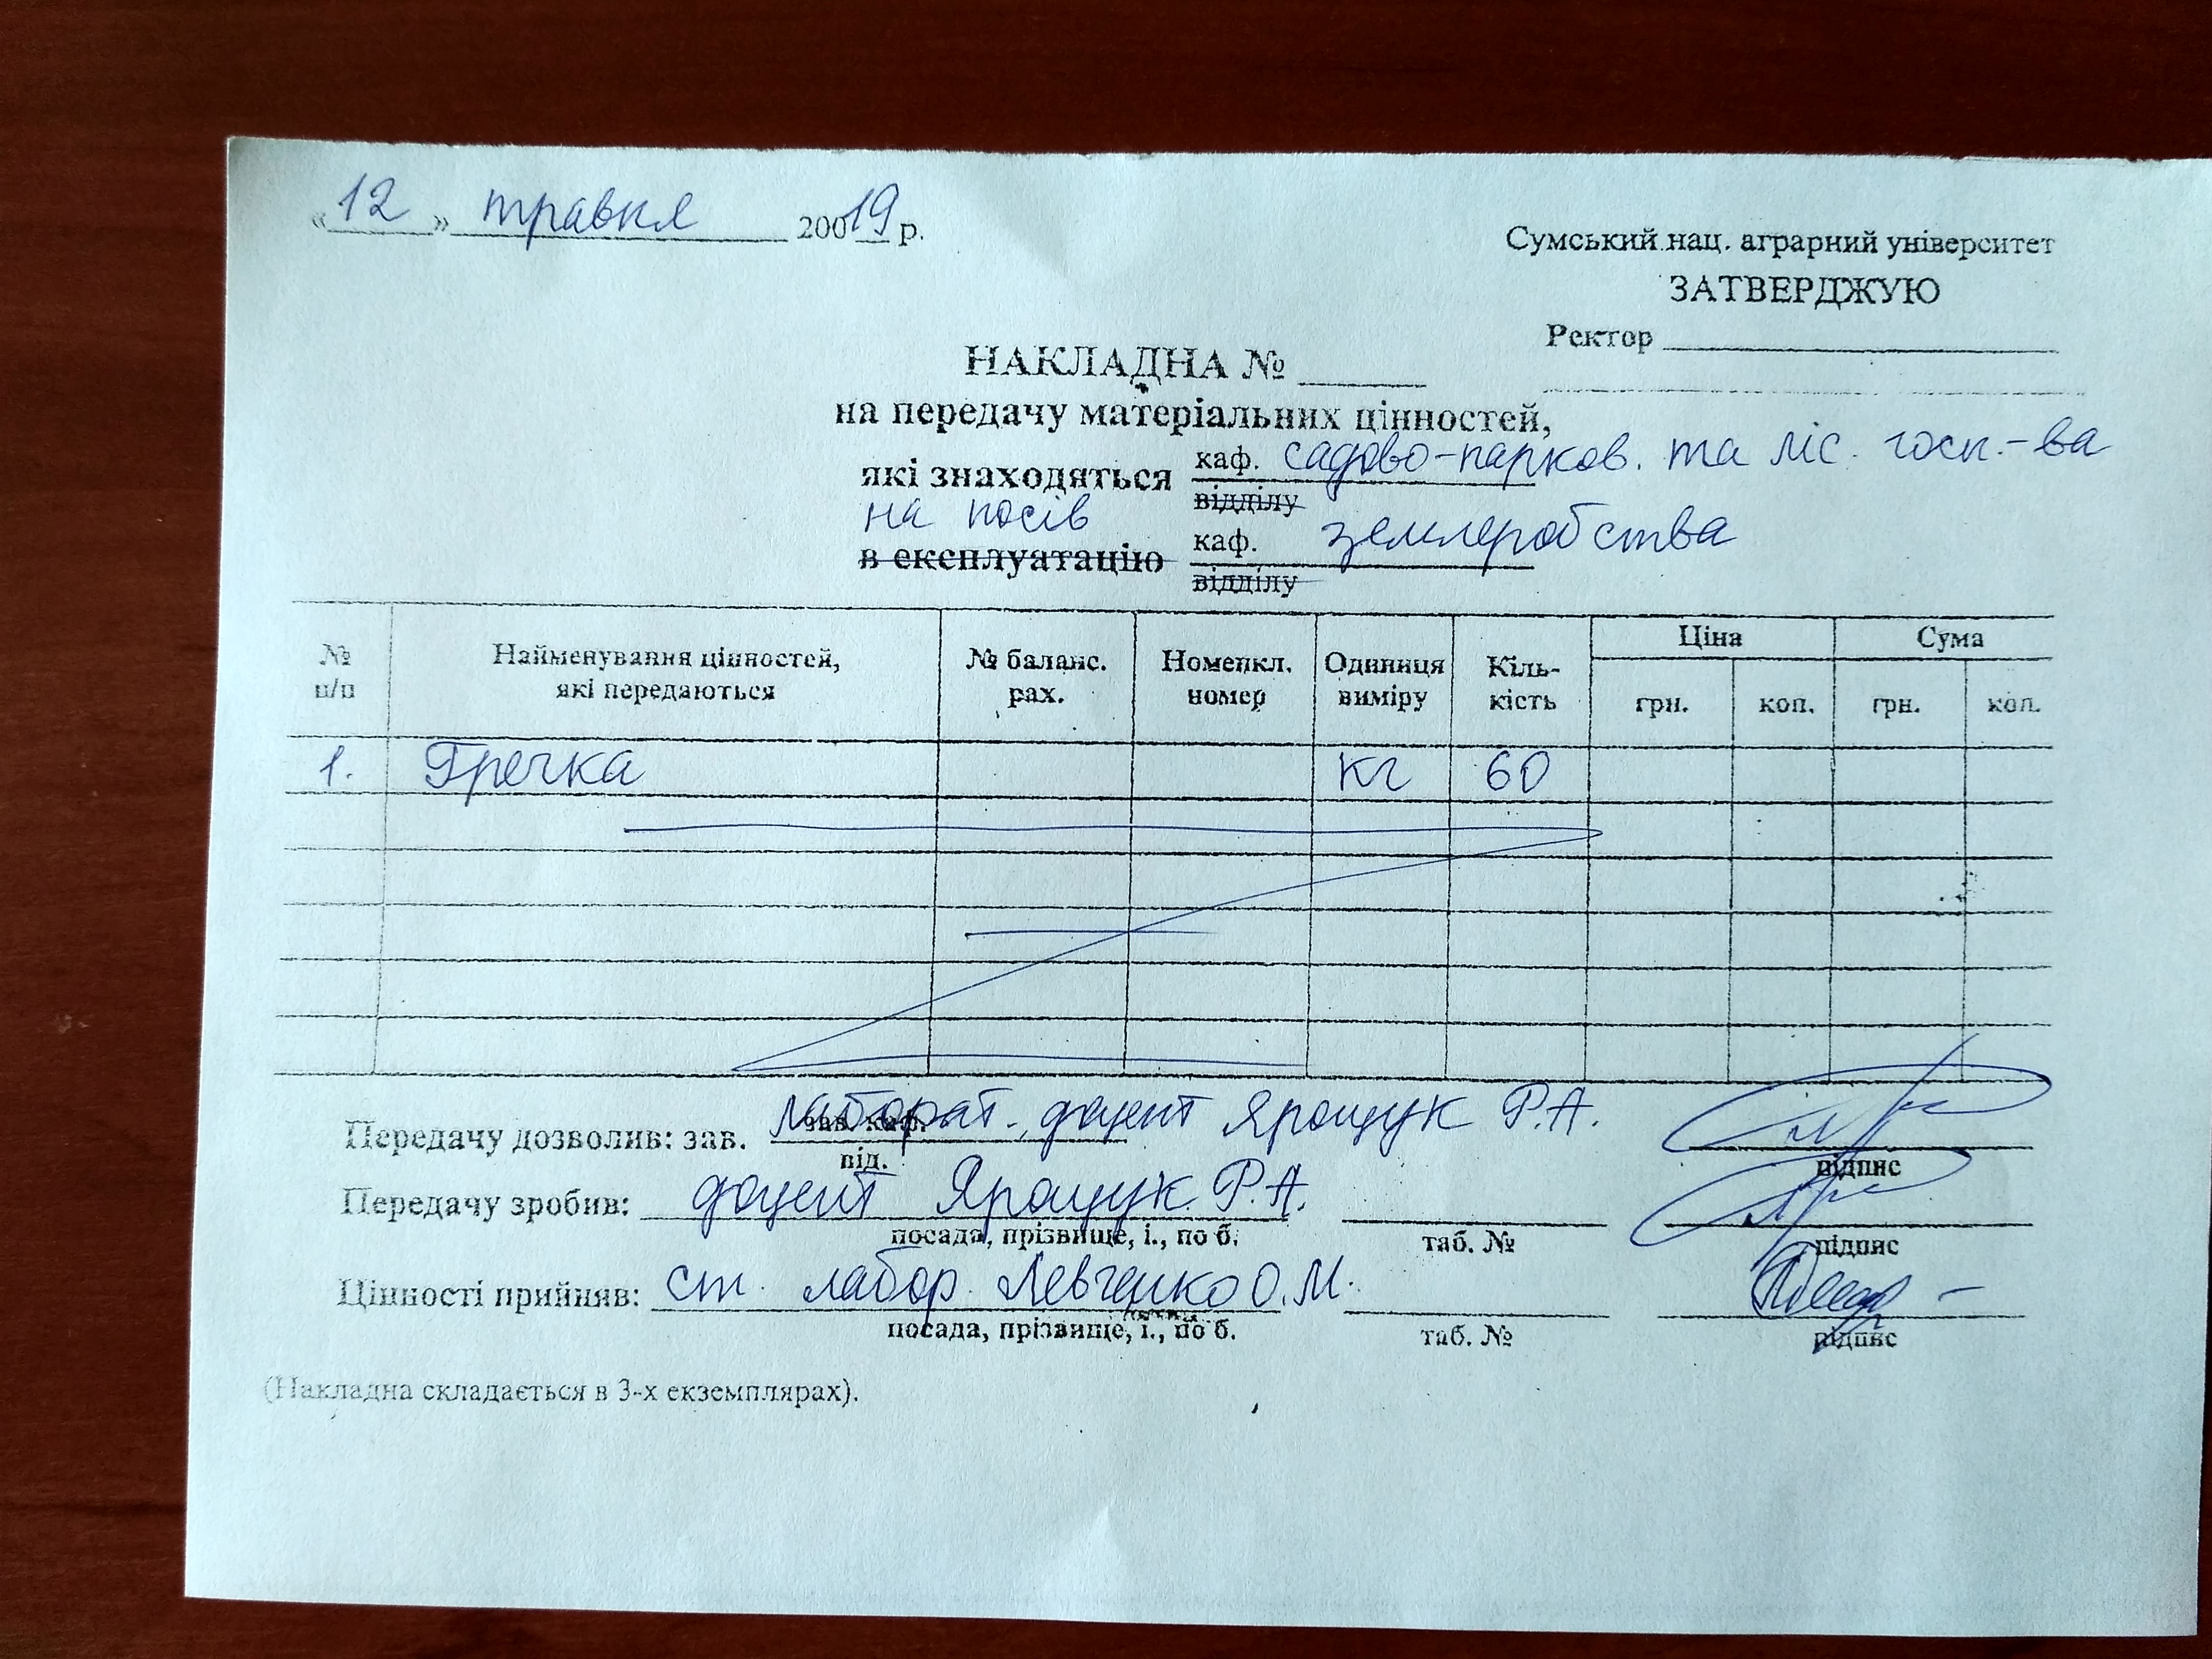 «12» травня 20019 р.
Сумський нац. аграрний університет
ЗАТВЕРДЖУЮ
Ректор
НАКЛАДНА №
на передачу матеріальних цінностей,
які знаходяться каф. садово-парков. та ліс. госп.-ва
відділу
на посів
в експлуатацію каф. землеробства
відділу
№ п/п Найменування цінностей, які передаються № баланс. рах. Номенкл. номер Одиниця виміру Кіль-кість Ціна Сума
грн. коп. грн. коп.
1. Гречка кг 60
Передачу дозволив: зав. зав. каф. лаборат., доцент Ярощук Р.А.
від. підпис
Передачу зробив: доцент Ярощук Р.А.
посада, прізвище, і., по б. таб. № підпис
Цінності прийняв: ст. лабор. Левченко О.М.
посада, прізвище, і., по б. таб. № підпис
(Накладна складається в 3-х екземплярах).